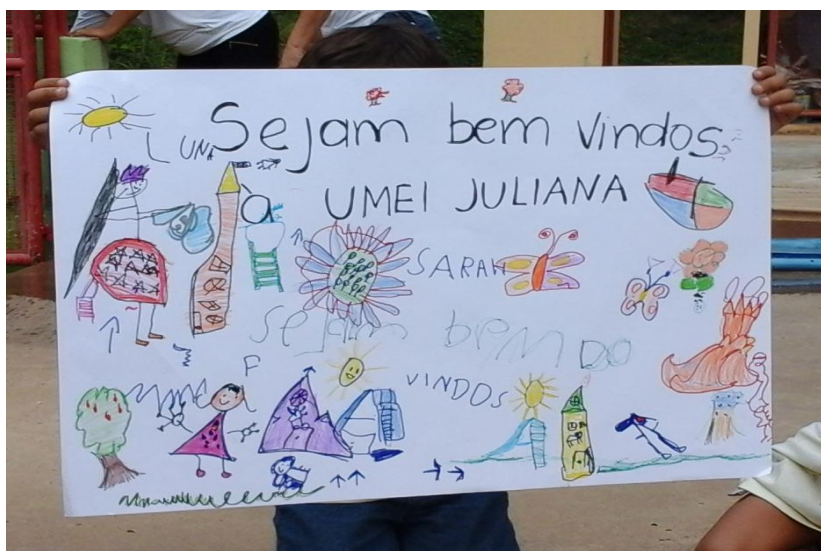 Sejam bem vindos
LUNA
à UMEI JULIANA
SARAH
Sejam bem
VINDOS